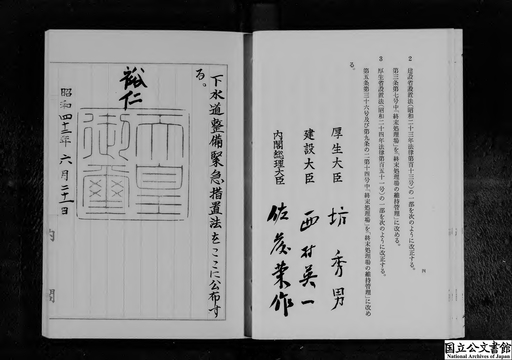 2 建設省設置法(昭和二十三年法律第百十三号)の一部を次のように改正する。
第三条第七号中「終末処理場」を「終末処理場の維持管理」に改める。
3 厚生省設置法(昭和二十四年法律第百五十一号)の一部を次のように改正する。
第五条第三十六号及び第九条の二第十四号中「終末処理場」を「終末処理場の維持管理」に改め
る。
厚生大臣 坊秀男
建設大臣 西村英一
内閣総理大臣 佐藤榮作
下水道整備緊急措置法をここに公布す
る。
裕仁
天皇
御璽
昭和四十二年六月二十一日
内閣
国立公文書館
National Archives of Japan